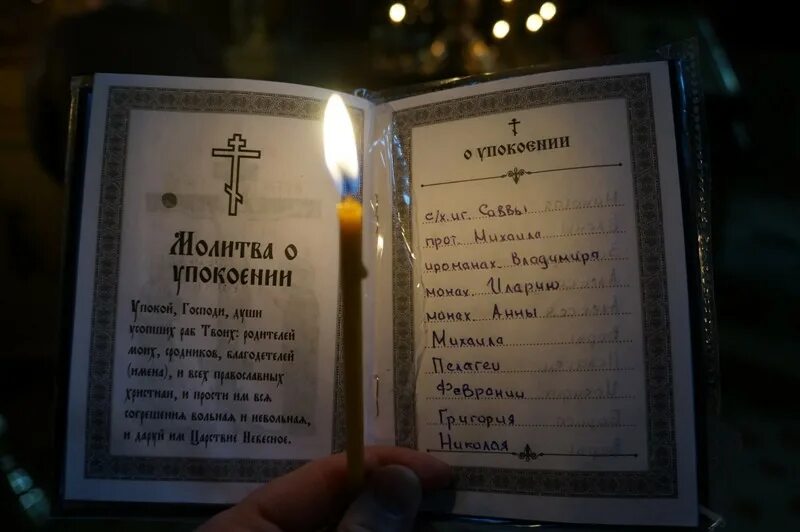 Молитва о
упокоении
Упокой, Господи, души
усопших раб Твоих: родителей
моих, сродников, благодетелей
(имена), и всех православных
христиан, и прости им вся
согрешения вольная и невольная,
и даруй им Царствие Небесное.
о упокоении
с/х.иг. Саввы
прот. Михаила
иромонах. Владимира
монах. Иларию
монах. Анны
Михаила
Пелагеи
Февронии
Григория
Николая